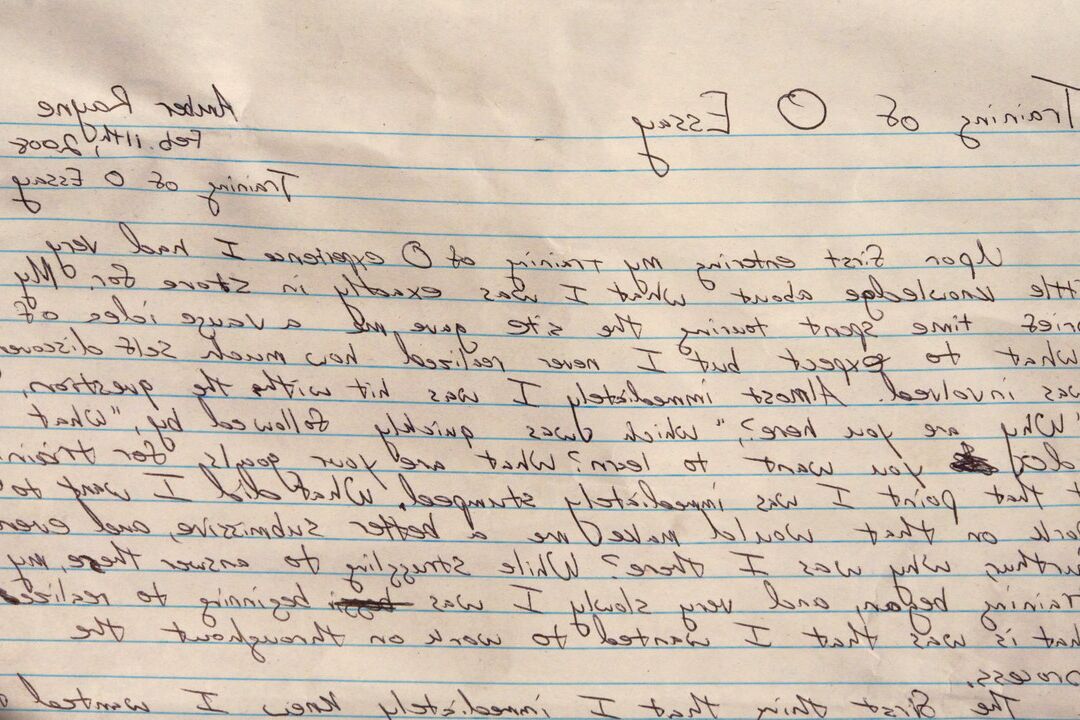 Training of O Essay Amber Rayne
Feb. 11th, 2008
Training of O Essay
Upon first entering my training of O experience I had very
ittle knowledge about what I was exactly in store for. My
time spent touring the site gave me a vauge idea of
what to expect but I never realized how much self discover
was involved. Almost immediately I was hit with the question,
"Why are you here?," which was quickly followed by, "What
do you want to learn? What are your goals for train
t that point I was immediately stumped. What did I want to
work on that would make me a better submissive, and even
why was I there? While struggling to answer these, my
training began, and very slowly I was beginning to realize
hat is was that I wanted to work on throughout the
process.
The first thing that I immediately knew I wanted